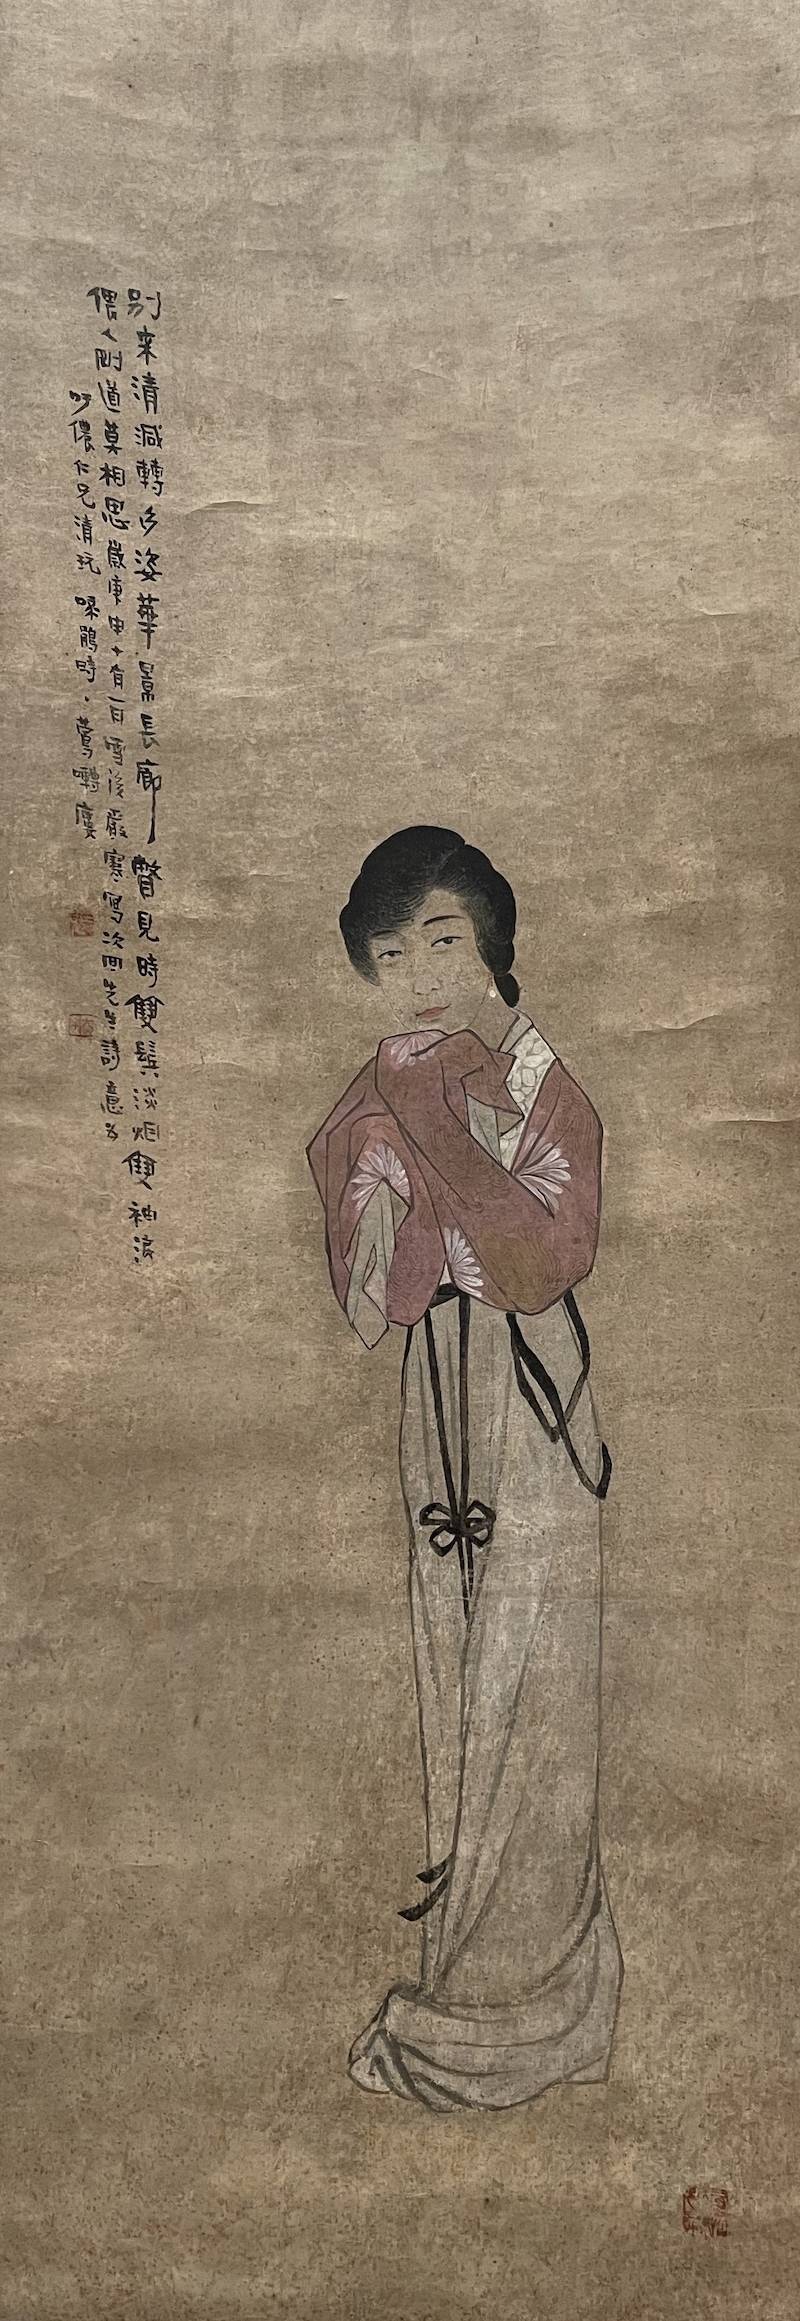 別來清減轉多姿華景長廊瞥見時雙鬢淡烟雙袖淚
偎人剛道莫相思歲庚申十有一月雪後嚴寒寫次回先生詩意為
吁儂仁兄清玩 啼鵑時時鶯囀廔